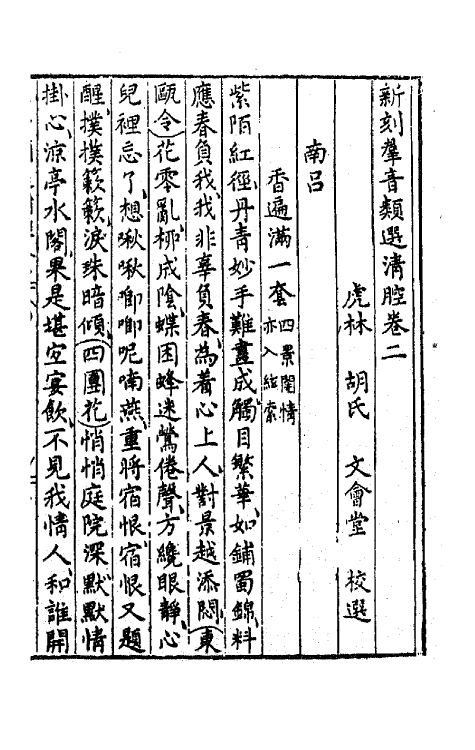 新刻羣音類選清腔卷二
虎林　胡氏　文會堂　校選
南吕
香遍滿一套四景閨情
亦入絃索
紫陌紅徑丹青妙手難畫成觸目繁華如鋪蜀錦料
應春負我我非辜負春為着心上人對景越添悶（東
甌令）花零亂柳成陰蝶困蜂迷鶯倦聲方纔眼靜心
兒裡忘了想啾啾唧唧呢喃燕重將宿恨宿恨又題
醒撲撲簌簌淚珠暗傾（四團花）悄悄庭院深默默情
掛心涼亭水閣果是堪宜宴飲不見我情人和誰開